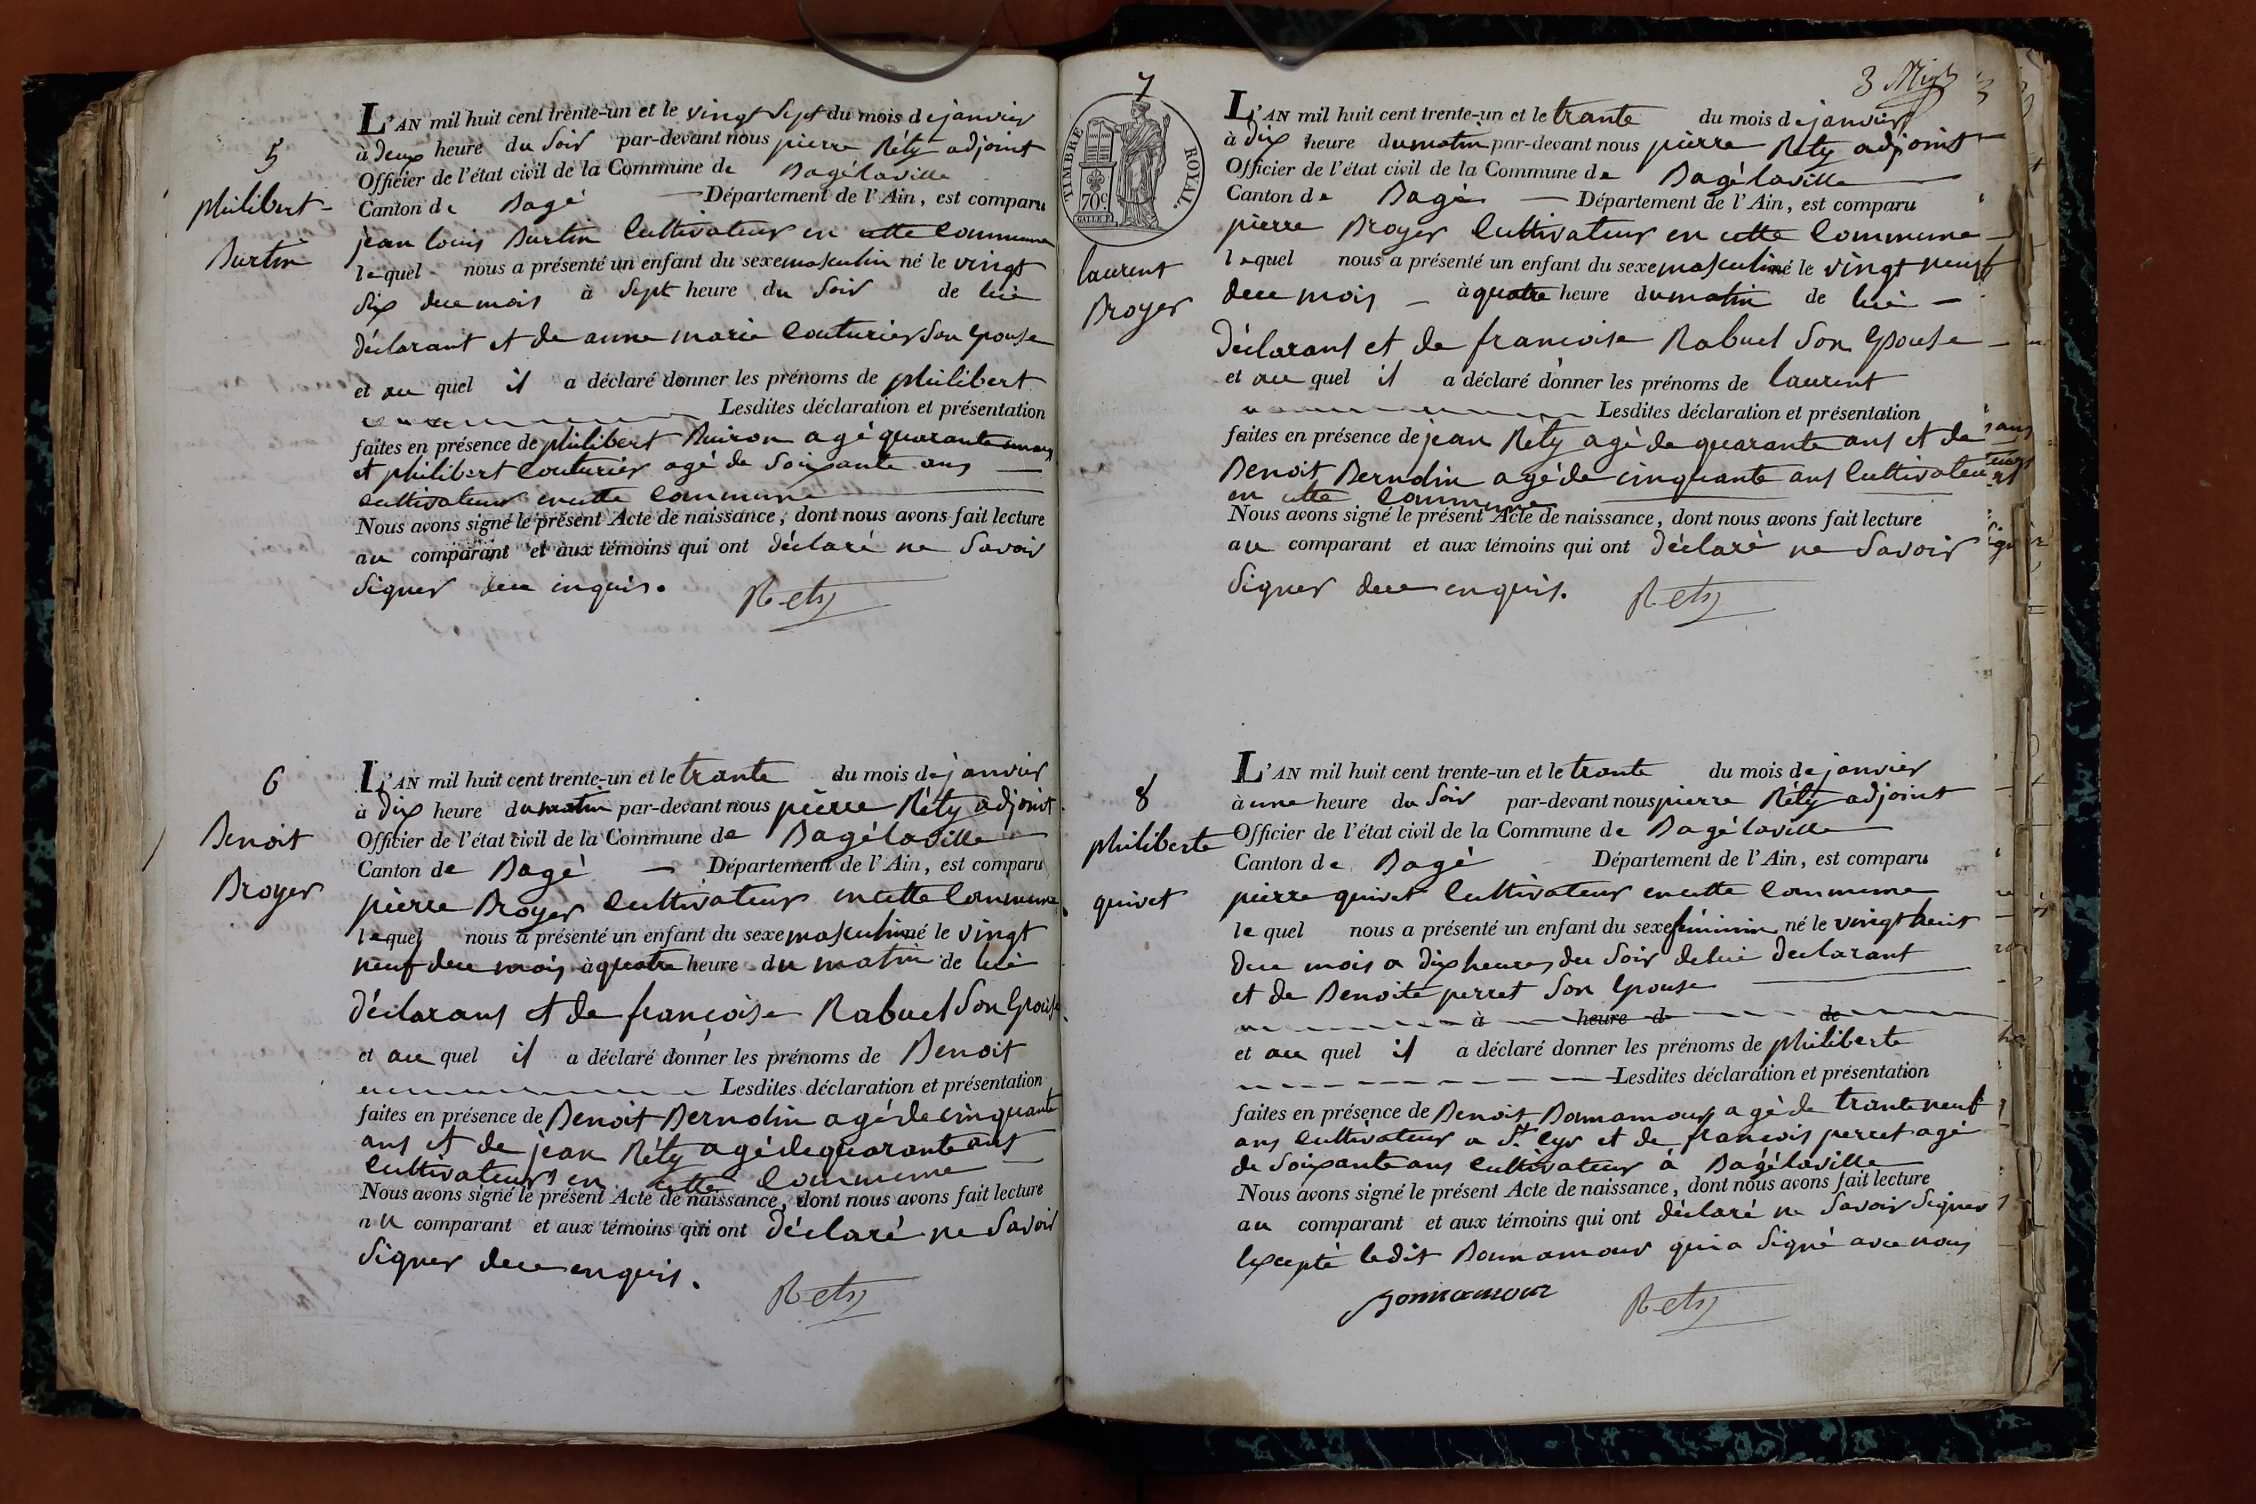 5
philibert
Burtin
L'AN mil huit cent trente-un et le vingt Sept du mois de janvier
à deux heure du Soir par-devant nous pierre Réty adjoint
Officier de l'état civil de la Commune de Bagélaville
Canton de Bagé Département de l'Ain, est comparu
jean louis Burtin Cultivateur en cette Commune
lequel nous a présenté un enfant du sexe masculin né le vingt
Six duu mois à Sept heure du Soir de lui
déclarant et de anne marie Couturier Son Epouse
et au quel il a déclaré donner les prénoms de philibert
Lesdites déclaration et présentation
faites en présence de philibert Buiron agé quarante
et philibert Couturier agé de Soixante ans
cultivateurs en cette Commune
Nous avons signé le présent Acte de naissance, dont nous avons fait lecture
au comparant et aux témoins qui ont déclaré ne Savoir
Signer duu enquis.
Rety
6
Benoit
Broyer
L'AN mil huit cent trente-un et le trante du mois de janvier
à dix heure du matin par-devant nous pierre Réty adjoint
Officier de l'état civil de la Commune de Bagélaville
Canton de Bagé Département de l'Ain, est comparu
pierre Broyer Cultivateur en cette Commune
lequel nous a présenté un enfant du sexe masculin né le vingt
neuf duu mois à quatre heure du matin de lui
déclarant et de françoise Rabuel Son Epouse
et au quel il a déclaré donner les prénoms de Benoit
Lesdites déclaration et présentation
faites en présence de Benoit Berndin agé de cinquante
ans et de jean Réty agé de quarante ans
Cultivateurs en cette Commune
Nous avons signé le présent Acte de naissance, dont nous avons fait lecture
au comparant et aux témoins qui ont déclaré ne Savoir
Signer duu enquis.
Rety
7
TIMBRE ROYAL.
70c
laurent
Broyer
L'AN mil huit cent trente-un et le trante du mois de janvier
à dix heure du matin par-devant nous pierre Réty adjoint
Officier de l'état civil de la Commune de Bagélaville
Canton de Bagé Département de l'Ain, est comparu
pierre Broyer Cultivateur en cette Commune
lequel nous a présenté un enfant du sexe masculin né le vingt neuf
duu mois à quatre heure du matin de lui
déclarant et de francoise Rabuel Son Epouse
et au quel il a déclaré donner les prénoms de laurent
Lesdites déclaration et présentation
faites en présence de jean Réty agé de quarante ans et de
Benoit Berndin agé de cinquante ans Cultivateurs
en cette Commune
Nous avons signé le présent Acte de naissance, dont nous avons fait lecture
au comparant et aux témoins qui ont déclaré ne Savoir
Signer duu enquis.
Rety
8
philiberte
quivet
L'AN mil huit cent trente-un et le trante du mois de janvier
à une heure du Soir par-devant nous pierre Réty adjoint
Officier de l'état civil de la Commune de Bagélaville
Canton de Bagé Département de l'Ain, est comparu
pierre quivet Cultivateur en cette Commune
lequel nous a présenté un enfant du sexe féminin né le vingt huit
duu mois a dix heures du Soir de lui declarant
et de Benoite perret Son Epouse
à heure d de
et au quel il a déclaré donner les prénoms de philiberte
Lesdites déclaration et présentation
faites en présence de Benoit Bonnamour agé de trante neuf
ans Cultivateur a St Cyr et de françois perret agé
de Soixante ans Cultivateur à Bagélaville
Nous avons signé le présent Acte de naissance, dont nous avons fait lecture
au comparant et aux témoins qui ont déclaré ne Savoir Signer
Excepté ledit Bonnamour qui a Signé avec nous
Bonnamour
Rety